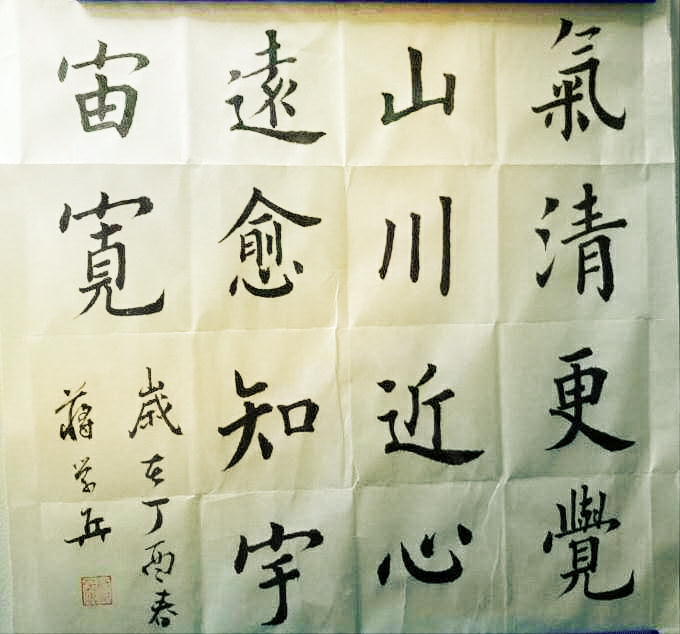 氣清更覺
山川近心
遠愈知宇
宙寬
歲在丁酉春
蔣学兵